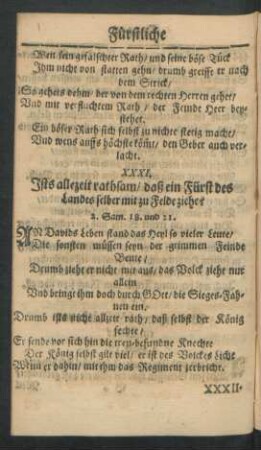 Fürstliche
Wen sein gefälscheter Rath/ und seine böse Tück
Ihm nicht von statten gehn/ drumb greifft er nach
dem Strick/
So gehets dehm/ der von dem rechten Herren gehet/
Und mit verfluchtem Rath/ der Feinde Heer bey-
stehet.
Ein böser Rath sich selbst zu nichte stetig mache/
Und wens auffs höchste kömt/ den Geber auch ver-
lacht.
XXXI.
Ists allezeit rathsam/ daß ein Fürst des
Landes selber mit zu Felde ziehe?
2. Sam. 18. und 21.
IN Davids Leben stand das Heyl so vieler Leute/
Die sonsten müssen seyn der grimmen Feinde
Beute/
Drumb zieht er nicht mit aus/ das Volck zieht nur
allein
Und bringt ihm doch durch GOtt/ die Sieges-Fäh-
nen ein.
Drumb ists nicht allzeit rath/ daß selbst der König
fechte/
Er sende vor sich hin die treu-befundne Knechte
Der König selbst gilt viel/ er ist des Volckes Licht
Wenn er dahin/ mit ihm das Regiment zerbricht.
XXXII.